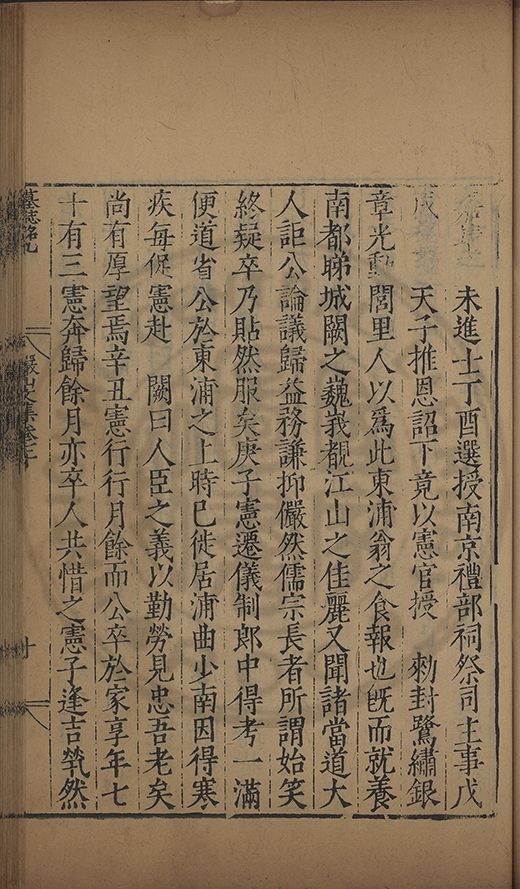 未進士丁酉選授南京禮部祠祭司主事戊
戌
天子推恩詔下竟以憲官授　勑封鷺繡銀
章光動閭里人以爲此東浦翁之食報也旣而就養
南都睇城闕之巍峩覩江山之佳麗又聞諸當道大
人詎公論議歸益務謙抑儼然儒宗長者所謂始笑
終疑卒乃貼然服矣庚子憲遷儀制郎中得考一滿
便道省公於東浦之上時巳徙居浦曲少南因得寒
疾每促憲赴　闕曰人臣之義以勤勞見忠吾老矣
尚有厚望焉辛丑憲行行月餘而公卒於家享年七
十有三憲奔歸餘月亦卒人共惜之憲子逢吉煢然
墓誌銘九
十